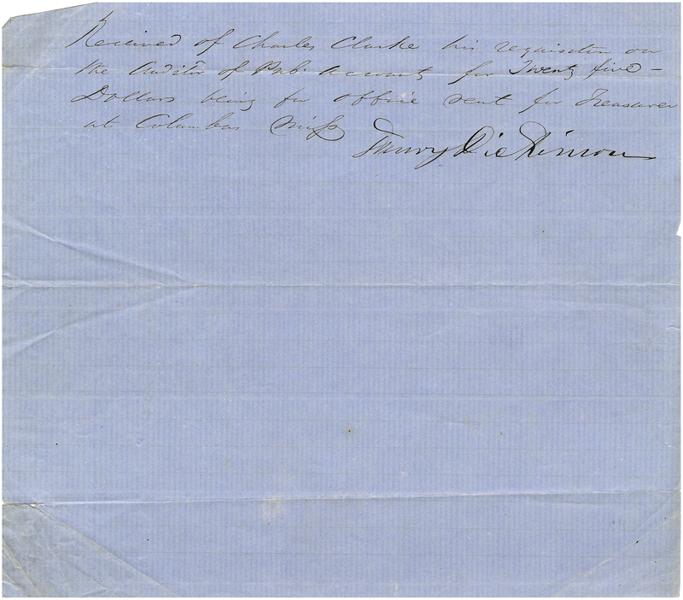 Received of Charles Clarke his requisition on
the Auditor of Pub. Accounts for Twenty five –
Dollars being for office rent for Treasurer
at Columbus Miss
Henry Dickinson